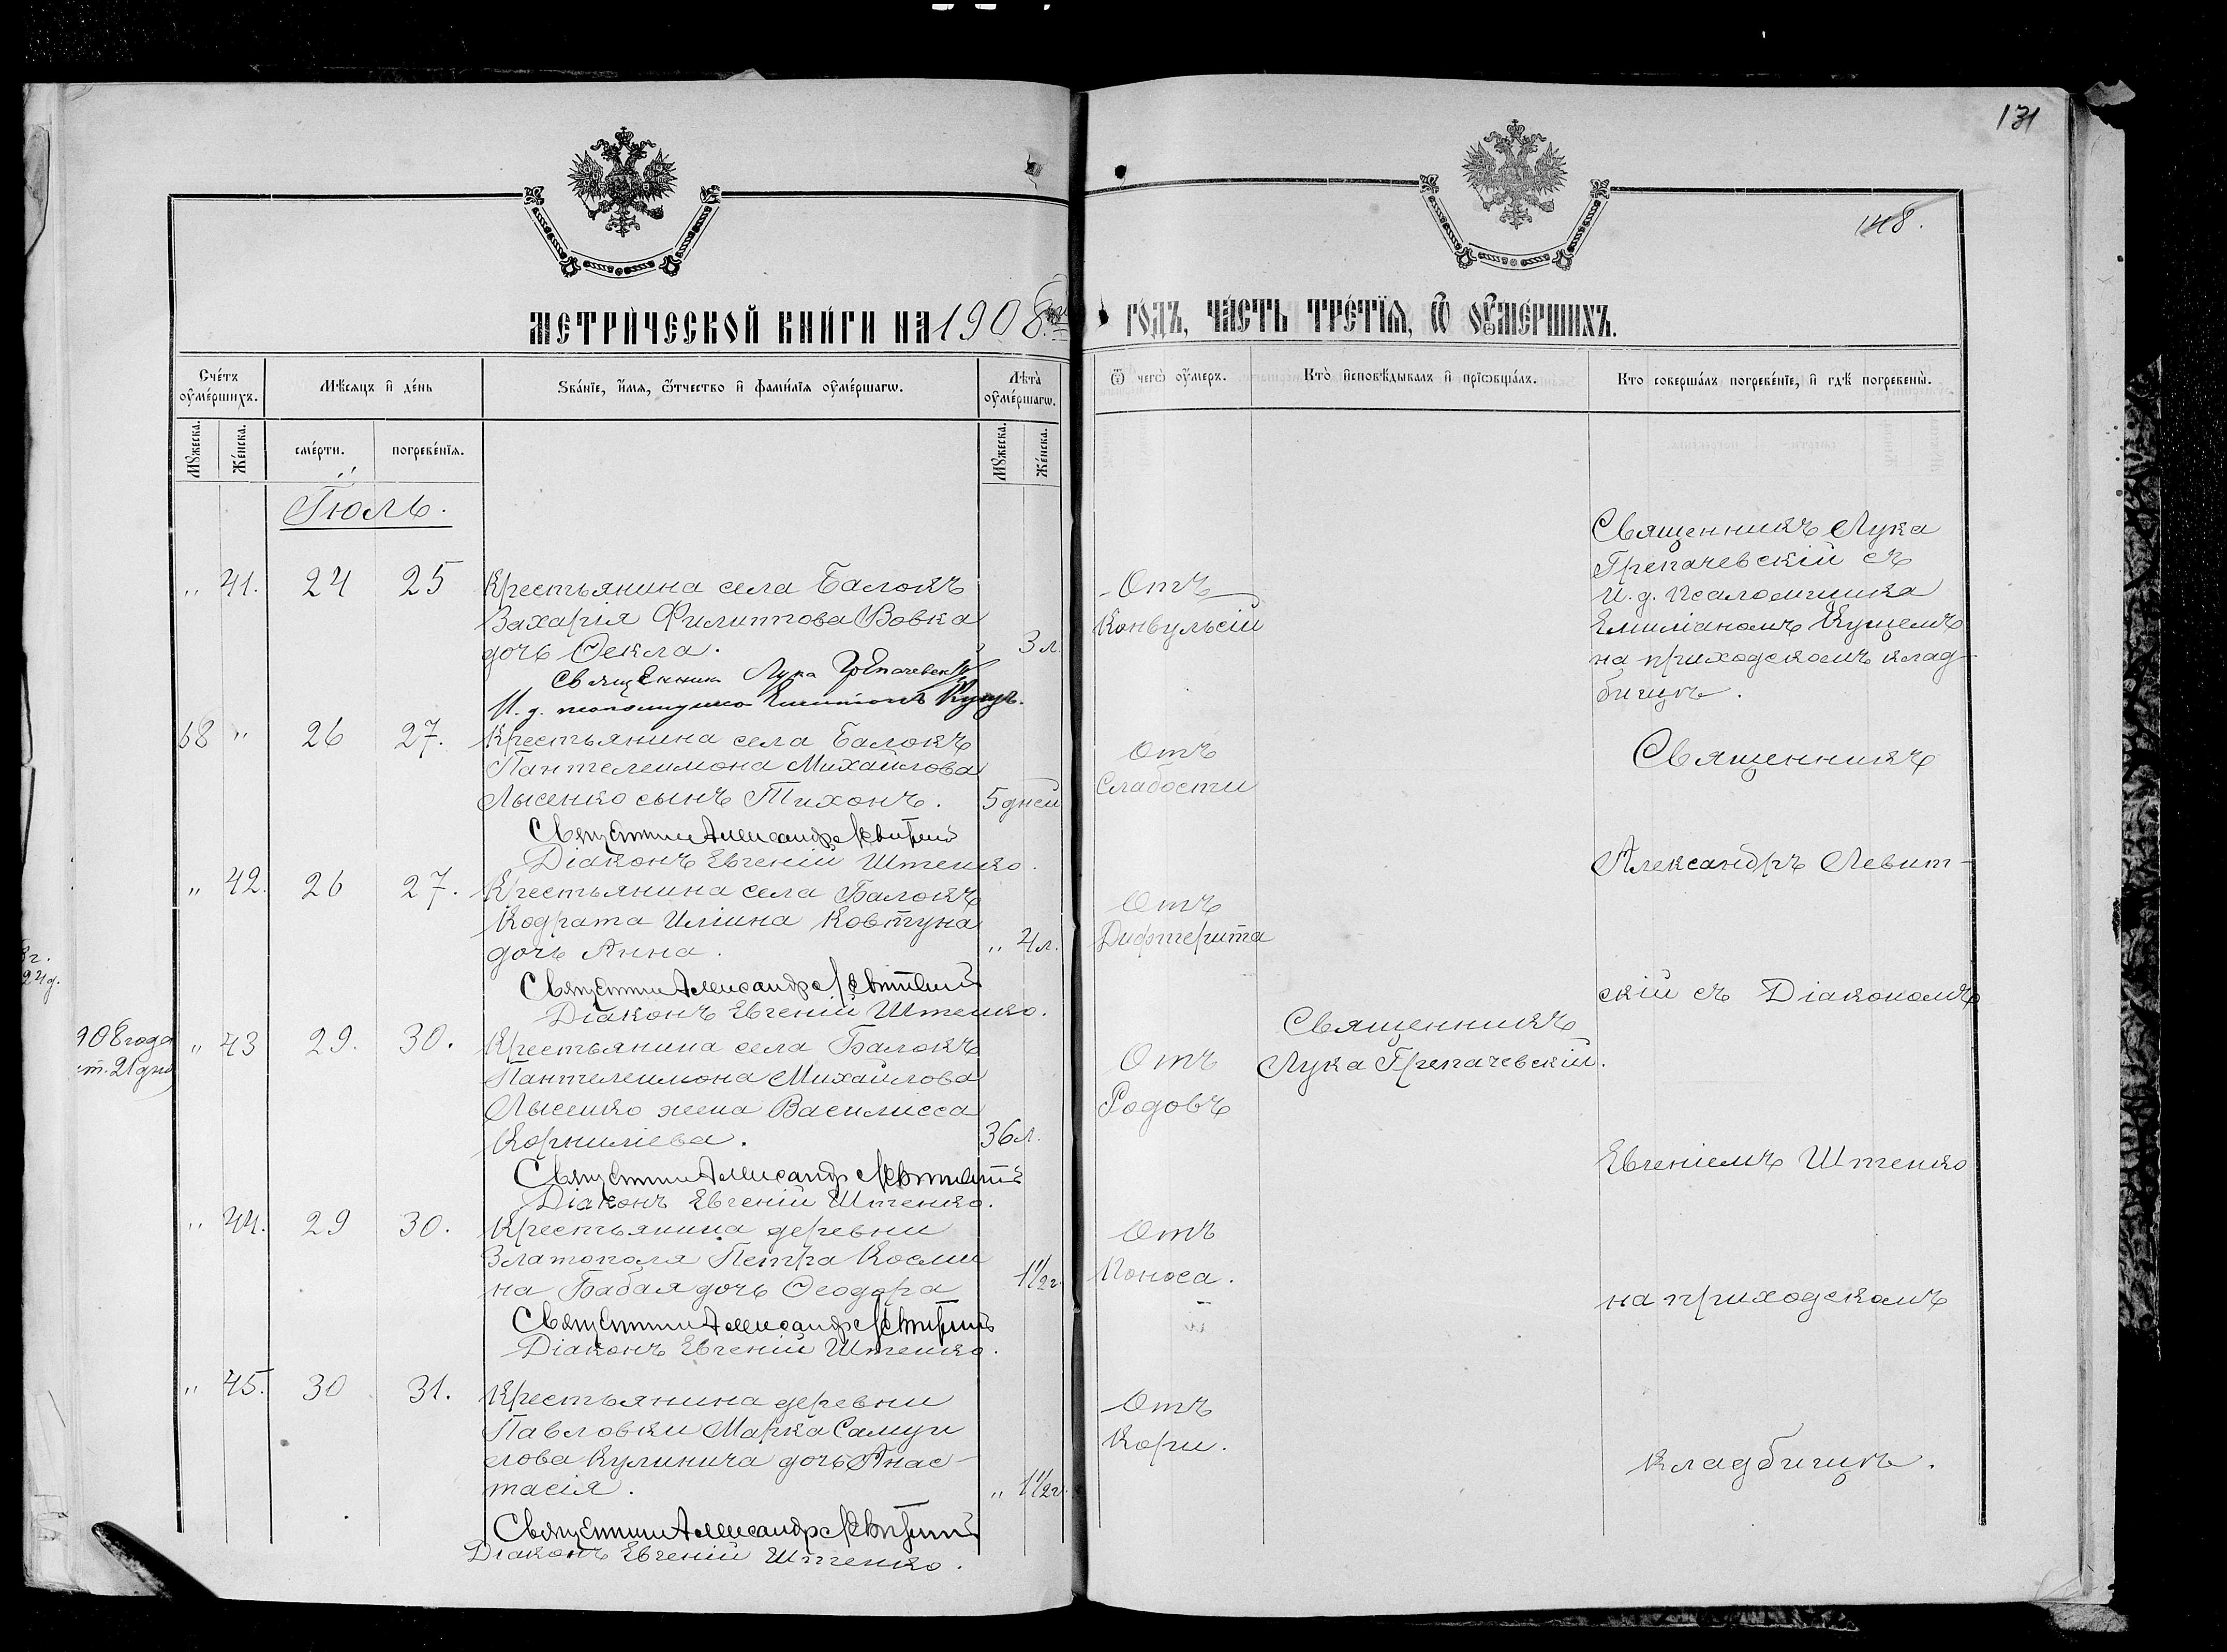 131
148.
МЕТРИЧЕСКОЙ КНИГИ НА 1908 ГОДЪ, ЧАСТЬ ТРЕТІЯ, Ѿ ОУМЕРШИХЪ.
Счетъ оумершихъ.
Мѣсяцъ и день
Званіе, имя, ѿчество и фамилія оумершагѡ.
Лѣта оумершагѡ.
Ѿ чегѡ оумеръ.
Кто исповѣдывалъ и пріѡбщалъ.
Кто совершалъ погребеніе, и гдѣ погребены.
Мужеска.
Женска.
смерти.
погребенія.
Мужеска.
Женска.
Іюль.
„ 41. 24 25
Крестьянина села Балокъ
Захарія Филиппова Вовка
дочь Ѳекла. 3 л.
Священникъ Лука Грепачевскій
И. д. псаломщика Емиліанъ Куцъ.
Отъ
Конвульсій
Священникъ Лука
Грепачевскій съ
И. д. псаломщика
Емиліаномъ Куцемъ
на приходскомъ клад-
бищѣ.
68 „ 26 27.
Крестьянина села Балокъ
Пантелеимона Михаилова
Лысенко сынъ Тихонъ. 5 дней
Священникъ Александръ Левитскій
Діаконъ Евгеній Штенко.
Отъ
Слабости
Священникъ
„ 42. 26 27.
Крестьянина села Балокъ
Кодрата Иліина Ковтуна
дочь Анна. „ 4 л.
Священникъ Александръ Левитскій
Діаконъ Евгеній Штенко.
Отъ
Дифтерита
Александръ Левит-
скій съ Діакономъ
908 года
21 дня
„ 43 29. 30.
Крестьянина села Балокъ
Пантелеимона Михаилова
Лысенко жена Василисса
Корниліева. 36 л.
Священникъ Александръ Левитскій
Діаконъ Евгеній Штенко.
Отъ
Родовъ
Священникъ
Лука Грепачевскій.
Евгеніемъ Штенко
„ 44. 29 30.
Крестьянина деревни
Златополя Петра Косми
на Бабая дочь Ѳеодора 1 1/2 г.
Священникъ Александръ Левитскій
Діаконъ Евгеній Штенко.
Отъ
Поноса.
на приходскомъ
„ 45. 30 31.
Крестьянина деревни
Павловки Марка Самуи
лова Кулинича дочь Анас-
тасія. „ 1 1/2 г.
Священникъ Александръ Левитскій
Діаконъ Евгеній Штенко.
Отъ
Кори.
кладбищѣ.